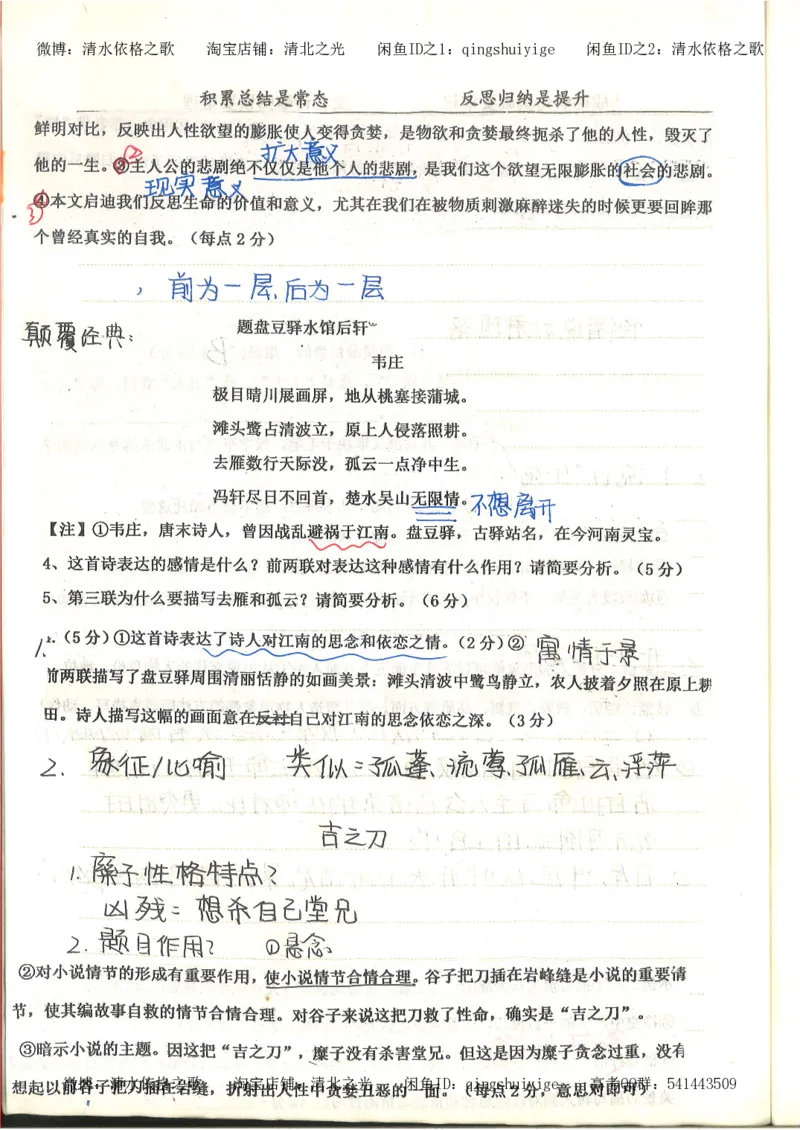 微博：清水依格之歌 淘宝店铺：清北之光 闲鱼ID之1：qingshuiyige 闲鱼ID之2：清水依格之歌
积累总结是常态 反思归纳是提升
鲜明对比，反映出人性欲望的膨胀使人变得贪婪，是物欲和贪婪最终扼杀了他的人性，毁灭了
扩大意义
他的一生。③②主人公的悲剧绝不仅仅是他个人的悲剧，是我们这个欲望无限膨胀的社会的悲剧。
现实意义
④③本文启迪我们反思生命的价值和意义，尤其在我们在被物质刺激麻醉迷失的时候更要回眸那
个曾经真实的自我。（每点2分）
，前为一层，后为一层
颠覆经典：
题盘豆驿水馆后轩
韦庄
极目晴川展画屏，地从桃塞接蒲城。
滩头鹭占清波立，原上人侵落照耕。
去雁数行天际没，孤云一点净中生。
冯轩尽日不回首，楚水吴山无限情。不想离开
【注】①韦庄，唐末诗人，曾因战乱避祸于江南。盘豆驿，古驿站名，在今河南灵宝。
4、这首诗表达的感情是什么？前两联对表达这种感情有什么作用？请简要分析。（5分）
5、第三联为什么要描写去雁和孤云？请简要分析。（6分）
1、（5分）①这首诗表达了诗人对江南的思念和依恋之情。（2分）②寓情于景
前两联描写了盘豆驿周围清丽恬静的如画美景：滩头清波中鹭鸟静立，农人披着夕照在原上耕
田。诗人描写这幅的画面意在反衬自己对江南的思念依恋之深。（3分）
2. 象征/比喻 类似：孤蓬、流莺、孤雁、云、浮萍
吉之刀
1. 糜子性格特点？
凶残：想杀自己堂兄
2. 题目作用？ ①悬念
②对小说情节的形成有重要作用，使小说情节合情合理。谷子把刀插在岩峰缝是小说的重要情
节，使其编故事自救的情节合情合理。对谷子来说这把刀救了性命，确实是“吉之刀”。
③暗示小说的主题。因这把“吉之刀”，糜子没有杀害堂兄。但这是因为糜子贪念过重，没有
想起以前谷子把刀插在岩缝，折射出人性中贪婪丑恶的一面。（每点2分，意思对即可）
微博：清水依格之歌 淘宝店铺：清北之光 闲鱼ID：qingshuiyige 高考QQ群：541443509